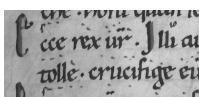 cce rex ur̄ · Illi au
tolle · crucifige eū